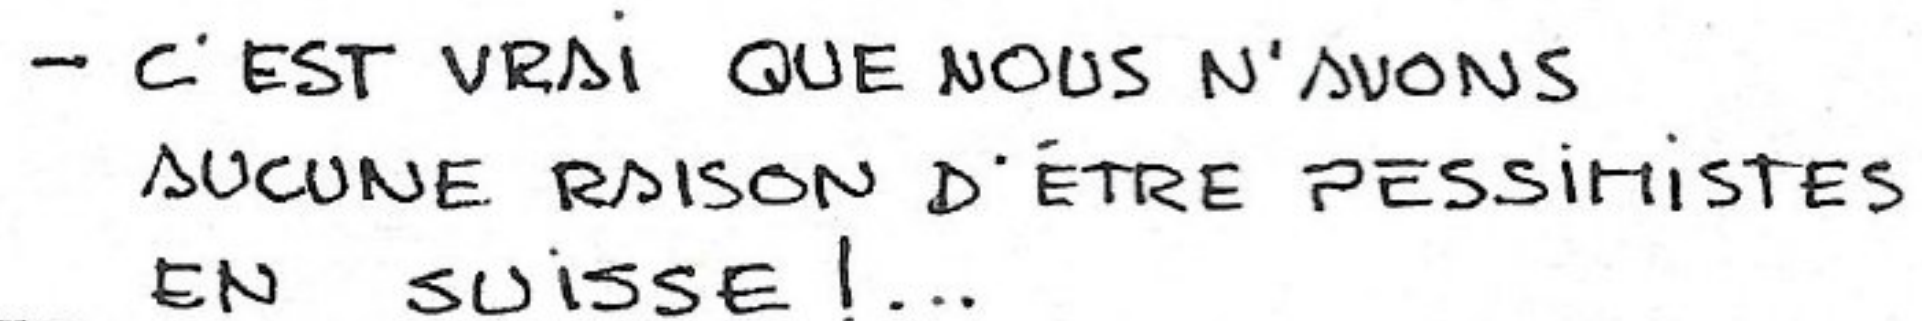 - C'EST VRAi QUE NOUS N'AVONS
AUCUNE RAISON D'ÊTRE PESSiMiSTES
EN SUiSSE !...